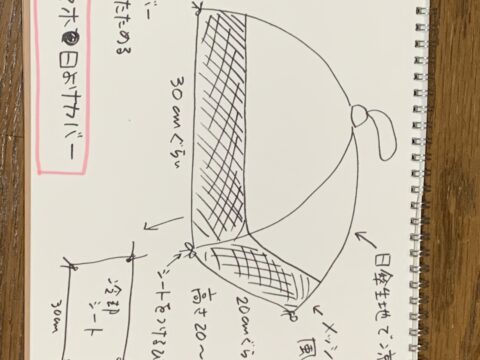 日傘生地で
メッシ
風
20cmぐら
高さ20〜
30cmぐらい
シートをつける
冷却
シート
30cm
バー
たためる
ホ 日よけカバー